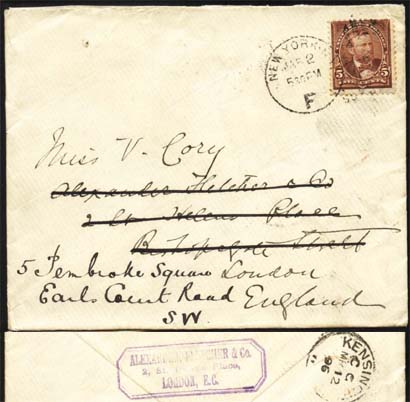 NEW YORK
MAR 2
530PM
F
5 5
Miss V. Cory
Alexander Fletcher & Co
2 St Helens Place
Bishopsgate Street
5 Pembroke Square London
Earls Court Road England
S W.
ALEXANDER FLETCHER & Co.
2, St. Helens Place,
LONDON, E.C.
KENSING
C C
MR 12
96